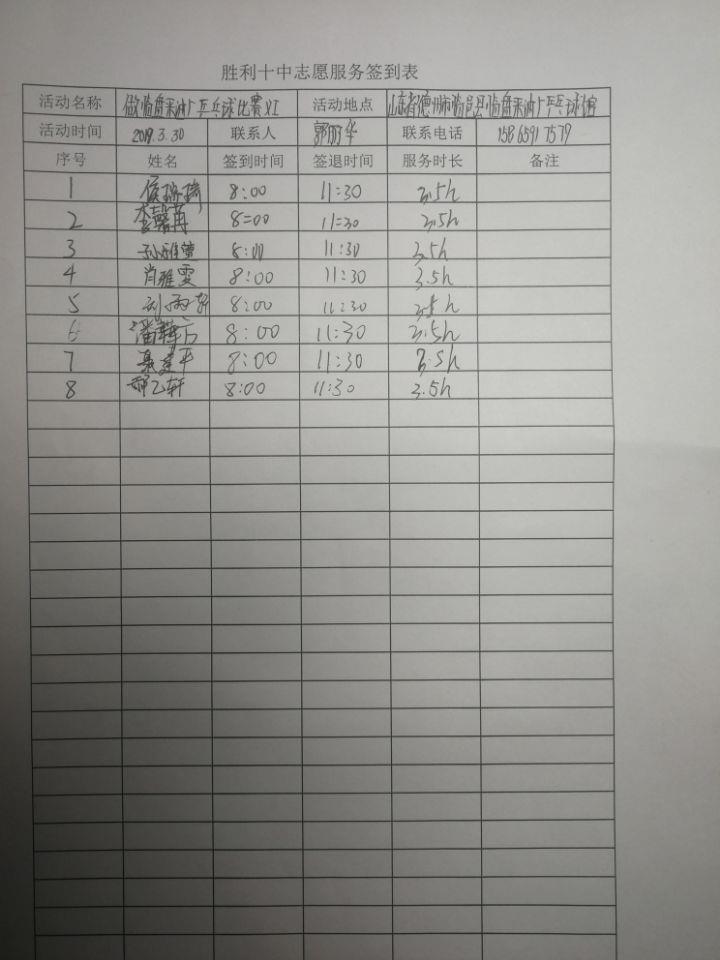 胜利十中志愿服务签到表
活动名称 做临盘采油厂乒乓球比赛义工 活动地点 山东省德州市临邑县临盘采油厂乒乓球馆
活动时间 2019.3.30 联系人 郭丽华 联系电话 15865917579
序号 姓名 签到时间 签退时间 服务时长 备注
1 8:00 11:30 3.5h
2 李馨苒 8:00 11:30 3.5h
3 孙雅萱 8:00 11:30 3.5h
4 肖雅雯 8:00 11:30 3.5h
5 刘雨轩 8:00 11:30 3.5h
6 8:00 11:30 3.5h
7 8:00 11:30 3.5h
8 8:00 11:30 3.5h